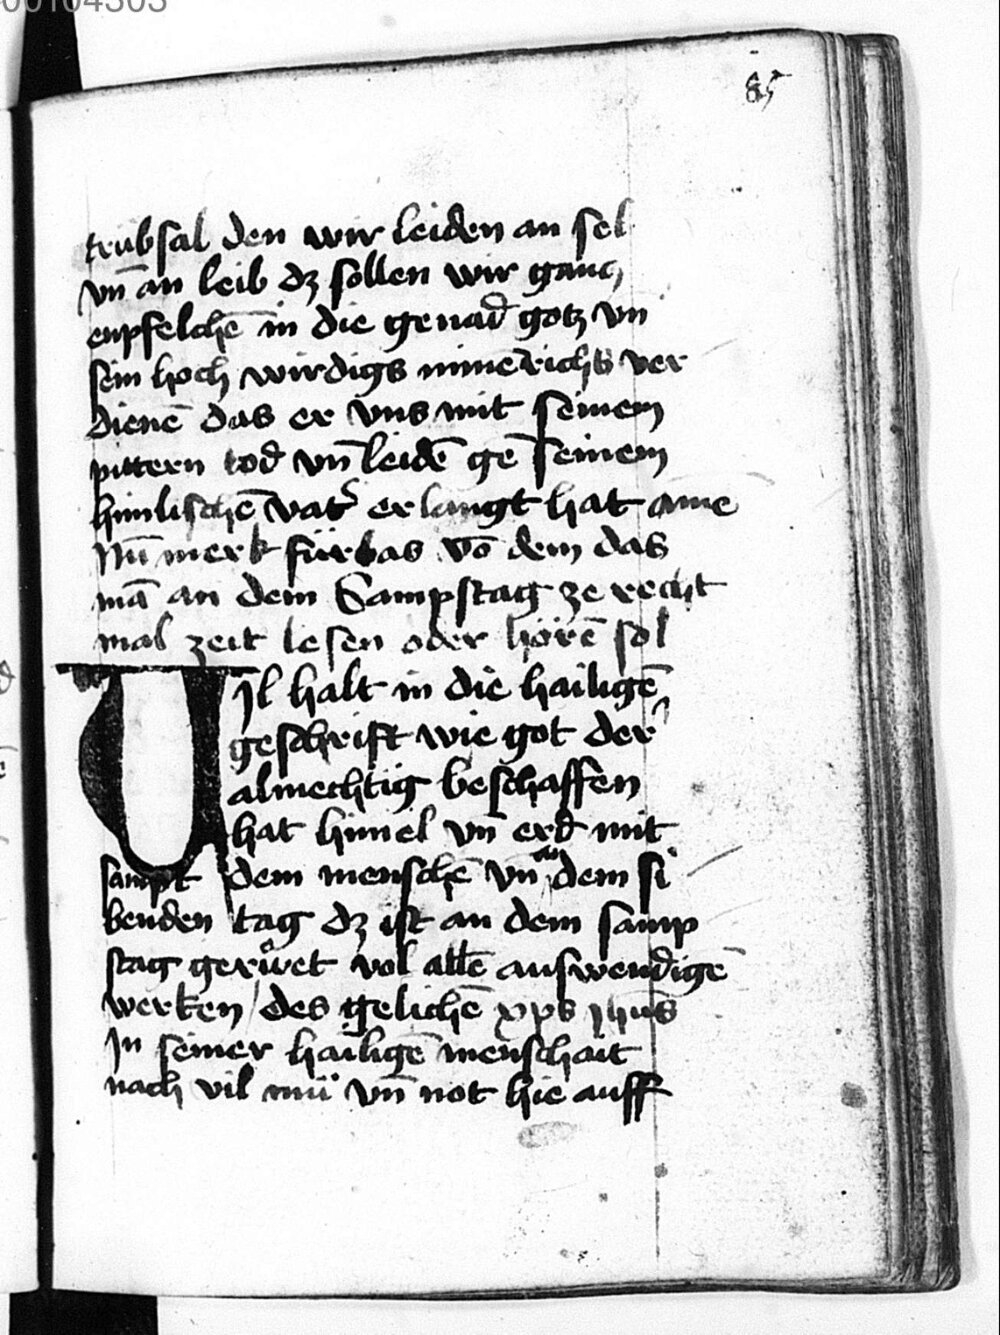 00104303
85
trübsal den wir leiden an sel
vn̄ an leib dz sollen wir gancz
enpfelchē in die genad gotz vn̄
sein hoch wirdigs
dienē das er vns mit seinem
pittern tod vn̄ leidē gē seinem
himlischē vatr̄ erlangt hat ame
Nū merk fürbas vō dem das
mā an dem Sampstag ze recht
mal zeit lesen oder hörē sol
Vil halt in die hailigē
geschrift wie got der
almechtig beschaffen
hat himel vn̄ erd mit
sampt dem menschē vn̄ an dem si
benden tag dz ist an dem samp
stag gerůwet vol allē auswendigē
werken / des gelichē xps jhūs
In seiner hailigē menschait
nach vil mü vn̄ not hie auff